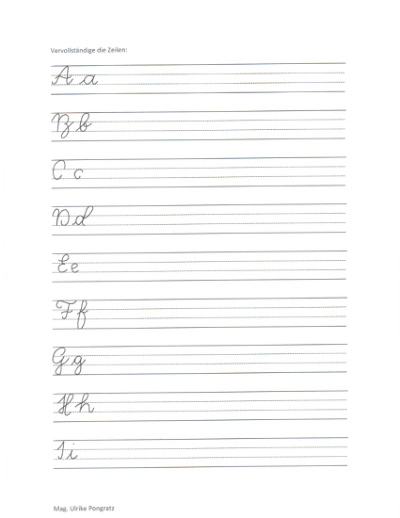 Vervollständige die Zeilen:
A a
B b
C c
D d
E e
F f
G g
H h
I i
Mag. Ulrike Pongratz